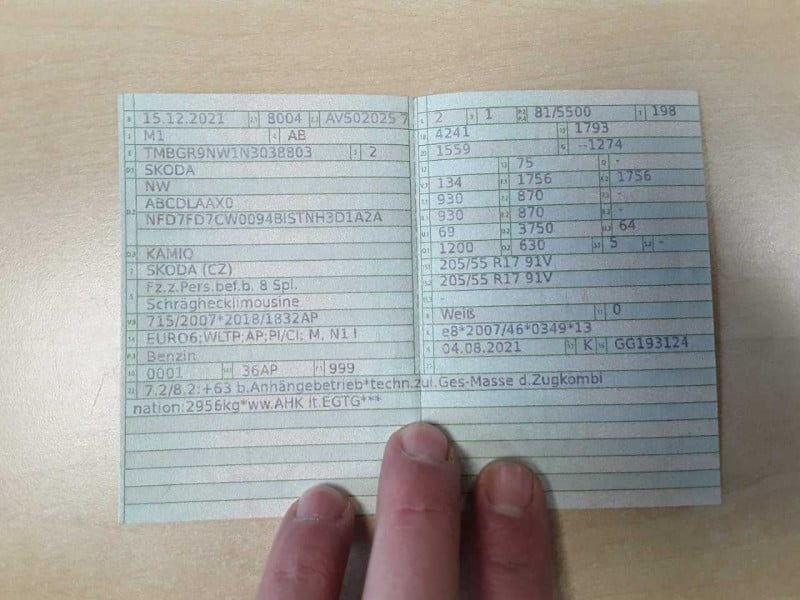 15.12.2021 8004 AVS02025 7
M1 AB
TMBGR9NW1N3038803 2
SKODA
NW
ABCDLAAX0
NFD7FD7CW0094BISTNH3D1A2A
KAMIQ
SKODA (CZ)
Fz.z.Pers.bef.b. 8 Spl.
Schräghecklimousine
715/2007*2018/1832AP
EURO6;WLTP;AP;PI/CI; M, N1 I
Benzin
0001 36AP 999
2 1 81/5500 198
4241 1793
1559 --1274
75 -
134 1756 1756
930 870 -
930 870 -
69 3750 64
1200 630 5 -
205/55 R17 91V
205/55 R17 91V
-
Weiß 0
e8*2007/46*0349*13
04.08.2021 K GG193124
7.2/8.2:+63 b.Anhängebetrieb*techn.zul.Ges-Masse d.Zugkombi
nation:2956kg*ww.AHK lt.EGTG***